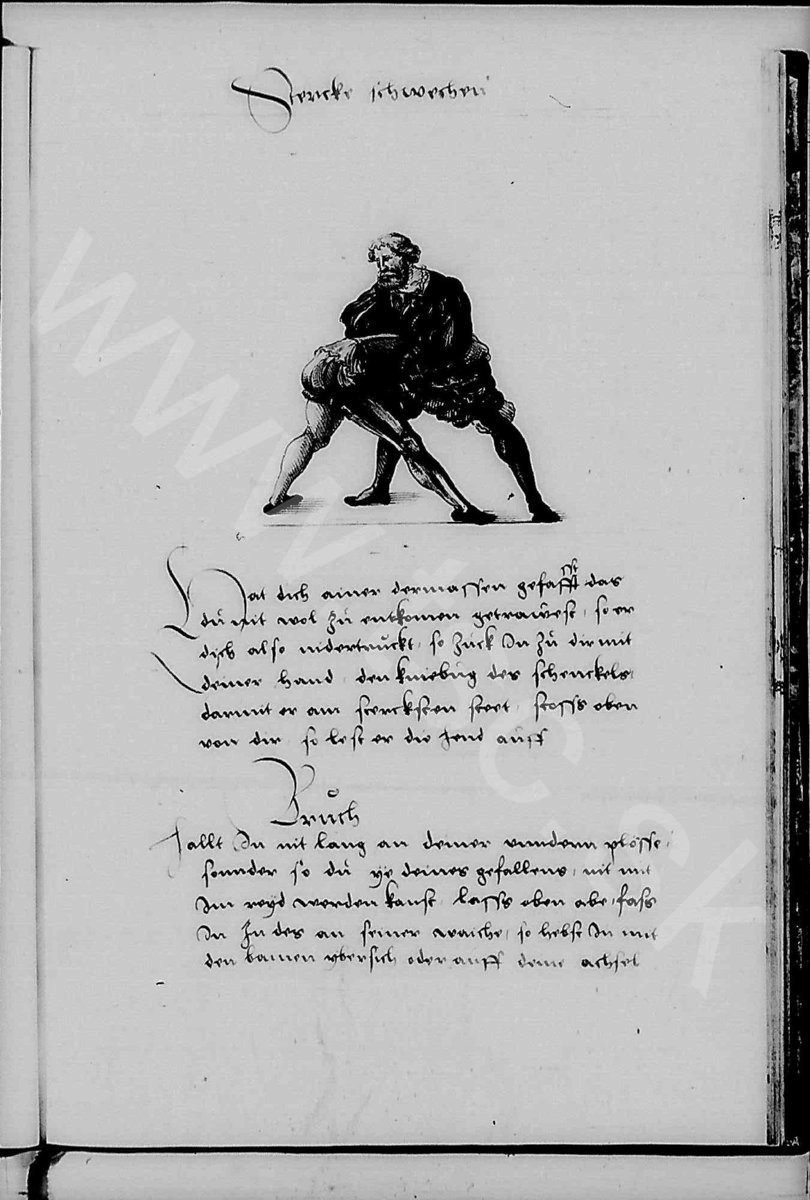 Stercke schwechen
Hat dich ainer dermassen gefasst das
dũ nit wol zũ entkomen getrawest, so er
dich also nidertruckt, so zuck In zũ dir mit
deiner hand, den kniebũg des schenckels,
darmit er am stercksten steet, stoss oben
von dir, so lest er die hend auff
Brũch
Hallt In nit lang an deiner vnndern plösse,
sonnder so dũ ye deines gefallens, nit mit
Im werden kanst, lass oben abe, fass
In In des an seiner waiche, so hebst In mit
den bainen ybersich oder auff deine achsel
www.
.sk